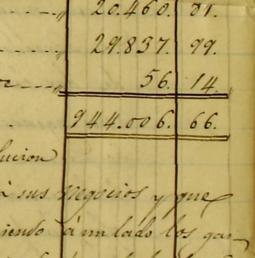 20.460. 01.
29.837. 99.
56. 14.
944.006. 66.
lucion
à sus negocios y que
iendo à un lado los gan